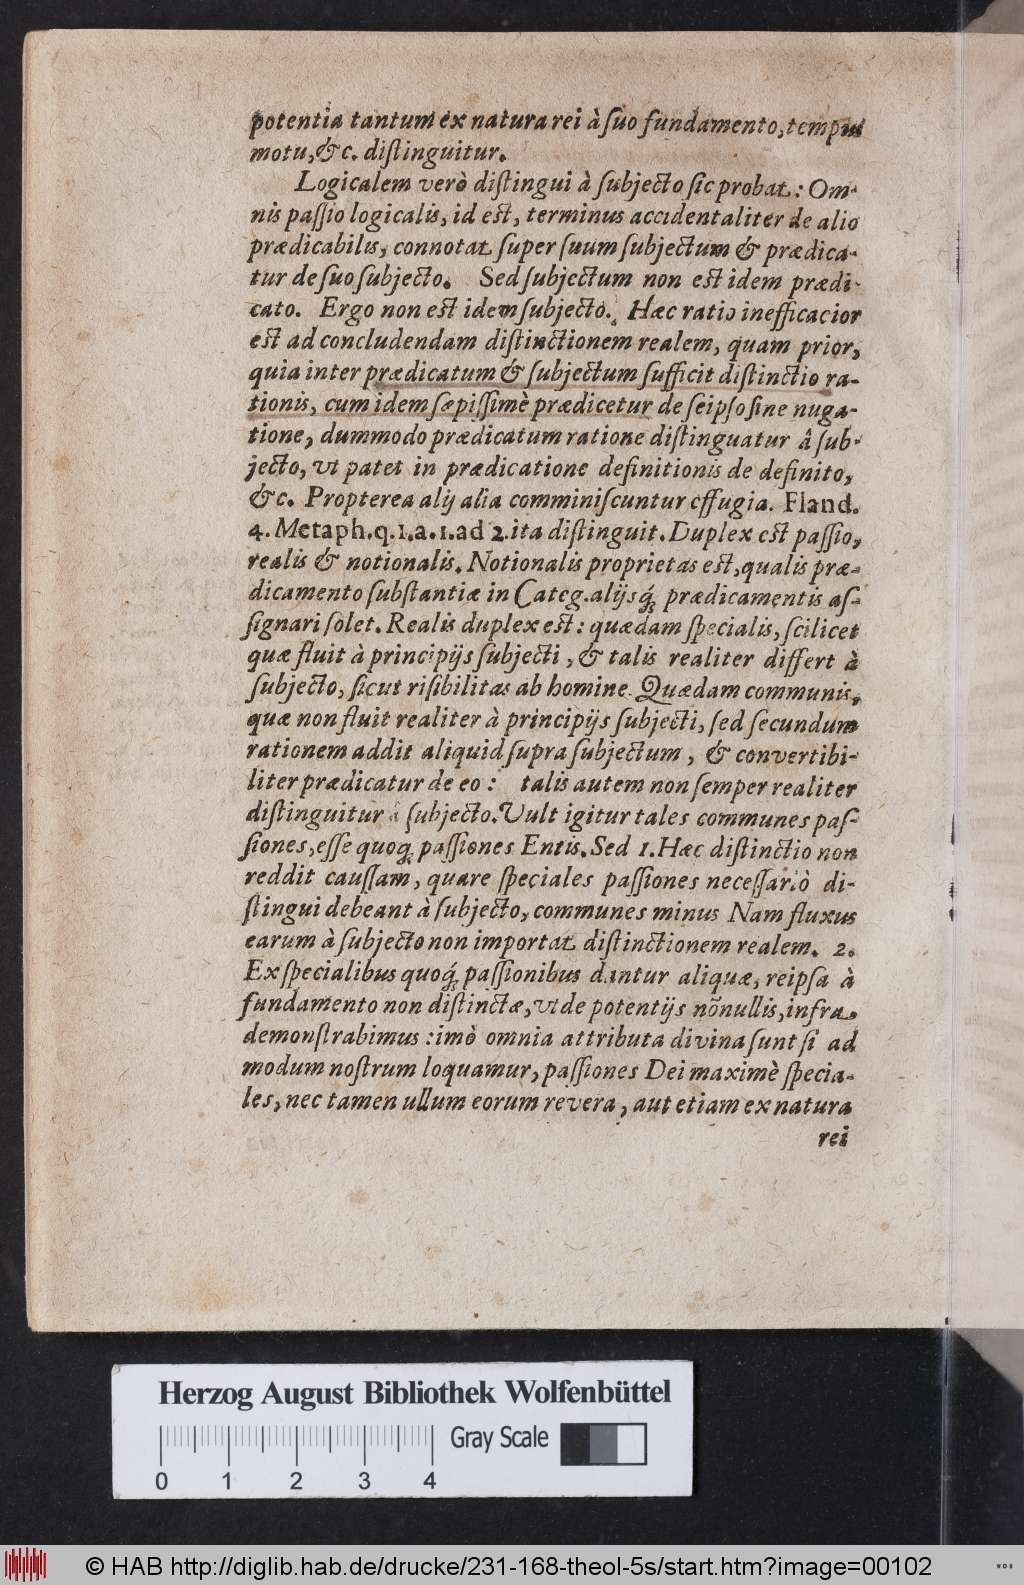 potentia tantum ex natura rei à suo fundamento, tempus
motu, &c. distinguitur.
Logicalem verò distingui à subjecto sic probat: Om-
nis passio logicalis, id est, terminus accidentaliter de alio
prædicabilis, connotat super suum subjectum & prædica-
tur de suo subjecto. Sed subjectum non est idem prædi-
cato. Ergo non est idem subjecto. Hæc ratio inefficacior
est ad concludendam distinctionem realem, quam prior,
quia inter prædicatum & subjectum sufficit distinctio ra-
tionis, cum idem sæpissimè prædicetur de seipso sine nuga-
tione, dummodo prædicatum ratione distinguatur â sub-
jecto, ut patet in prædicatione definitionis de definito,
&c. Propterea alij alia comminiscuntur effugia. Fland.
4. Metaph. q. 1. a. 1. ad 2. ita distinguit. Duplex est passio,
realis & notionalis. Notionalis proprietas est, qualis præ-
dicamento substantiæ in Categ. alijsq́; prædicamentis as-
signari solet. Realis duplex est: quædam specialis, scilicet
quæ fluit à principijs subjecti, & talis realiter differt à
subjecto, sicut risibilitas ab homine. Quædam communis,
quæ non fluit realiter à principijs subjecti, sed secundum
rationem addit aliquid supra subjectum, & convertibi-
liter prædicatur de eo: talis autem non semper realiter
distinguitur à subjecto. Vult igitur tales communes pas-
siones, esse quoq; passiones Entis. Sed 1. Hæc distinctio non
reddit caussam, quare speciales passiones necessariò di-
stingui debeant à subjecto, communes minus Nam fluxus
earum à subjecto non importat distinctionem realem. 2.
Ex specialibus quoq́; passionibus dantur aliquæ, reipsa à
fundamento non distinctæ, ut de potentijs nõnullis, infra
demonstrabimus: imò omnia attributa divina sunt si ad
modum nostrum loquamur, passiones Dei maximè specia-
les, nec tamen ullum eorum revera, aut etiam ex natura
rei
Herzog August Bibliothek Wolfenbüttel
Gray Scale
0 1 2 3 4
© HAB http://diglib.hab.de/drucke/231-168-theol-5s/start.htm?image=00102